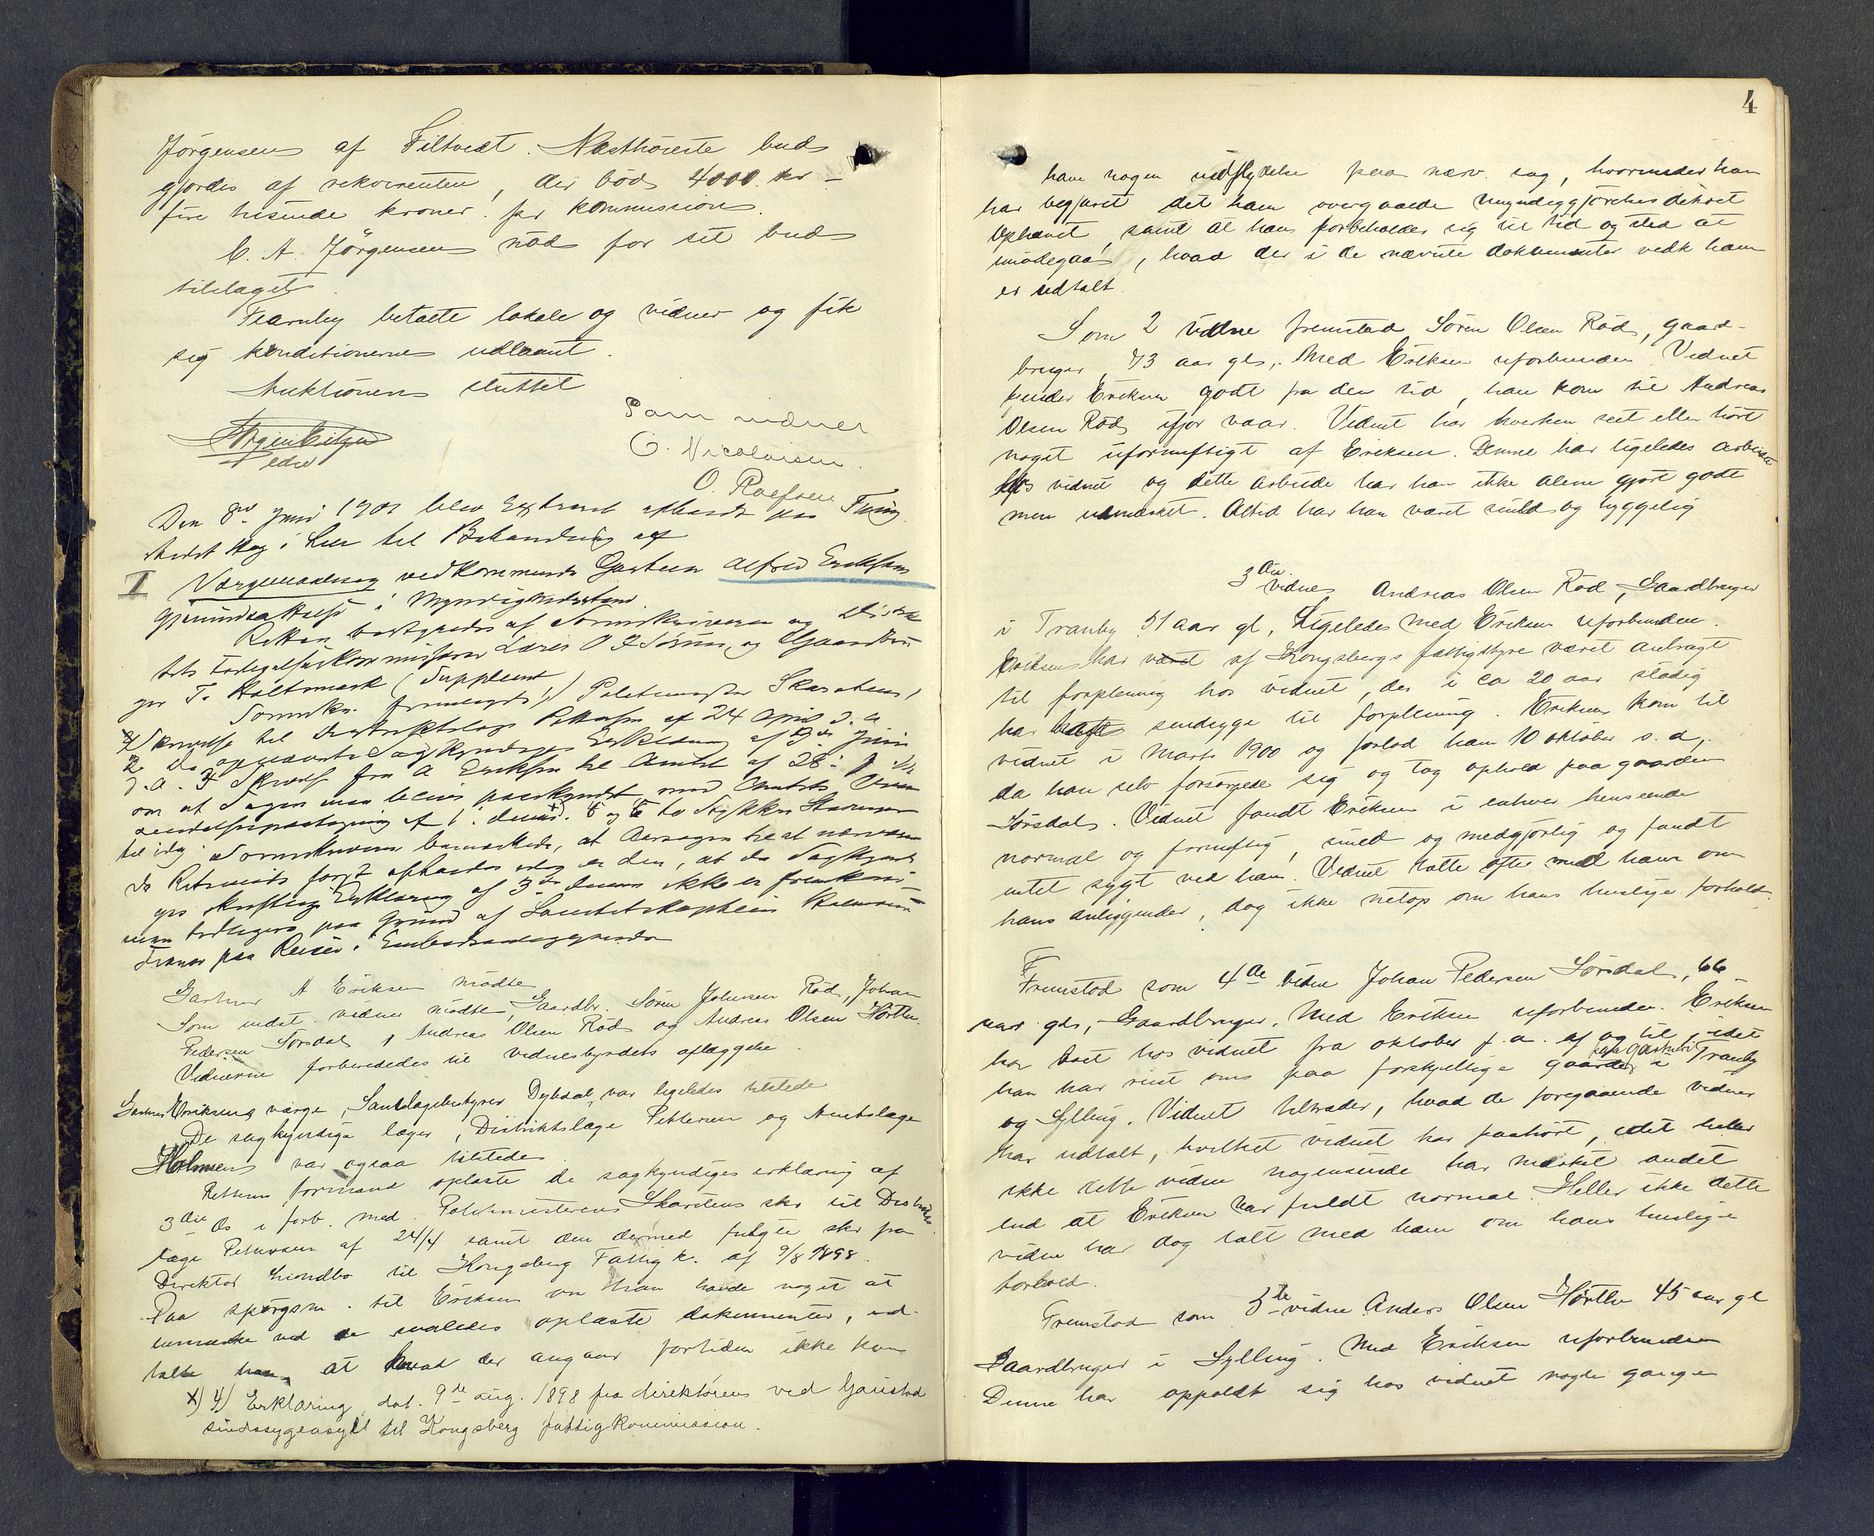 Jørgensen af Filtvedt. Næsthøieste bud
gjordes af rekvirenten, der bød 4000 kr –
fire tusinde kroner. pr kommission.
C. A. Jørgensen nød for sit bud
tilslaget.
Fearnley betalte lokale og vidner og fik
sig konditionerne udlaant.
Auktionen sluttet
Som vidner
O. Nicolaisen.
O. Roefsen
Den 8de Juni 1901 blev Extraret afholdt paa Thing-
stedet Haug i Lier til Behandling af
I Værgemaalssag vedkommende Gartner Alfred Eriksens
Gjenindsættelse i Myndighedsstand.
Retten bestyredes af Sorenskriveren og Distrik
tets Forligelseskommissærer Lærer O. Sørum og Gaardbru
ger T. Holtsmark (Suppleant)
Sorenskr. fremlagde 1) Politimester Skarstens
Skrivelse til Distriktslæge Pettersen af 24 April d. a.
2 De opnævnte Sagkyndiges Erklæring af 3die Juni
d. A. 3 Skrivelse fra A Eriksen til Amtet af 28
om at Sagen maa blive paaskyndet med Amtets
sendelsespaategning af 1. dennes. x) 5 og 6 to Stykker Stevninger
til idag. Sorenskriveren bemærkede, at Aarsagen til at nærværen
de Retsmøde først afholdes idag er den, at de Sagkyndi
ges skriftlige Erklæring af 3die dennes ikke er fremkom
men tidligere paa Grund af Sanitetskaptein Holmsens
Fravær paa Reiser i Embedsanliggender
Gartner A Eriksen mødte
Som indst. vidner mødte, Gaardbr. Søren Johnsen Rød, Johan
Pedersen Sørsdal, Andreas Olsen Rød og Andreas Olsen Hørthe.
Vidnerne forberededes til vidnesbyrdets aflæggelse.
Gartner Eriksens værge, Sandsagebestyrer Dybdal, var ligeledes tilstede
De sagkyndige læger, Distriktslæge Pettersen og Amtslæge
Holmsen var ogsaa tilstede
Rettens formand oplæste de sagkyndiges erklæring af
3die ds i forb. med Politimesterens Skarstens skr til Distrikts
læge Pettersen af 24/4 samt den dermed fulgte skr fra
Direktør Lindbo til Kongsberg Fattigk. af 9/8 1898.
Paa spørgsm. til Eriksen om han havde noget at
bemærke ved de saaledes oplæste dokumenter, ud-
talte han, at hvad der angaar fortiden ikke kan
x) 4) Erklæring dat. 9de aug. 1898 fra direktøren ved Gaustad
sindssygeasyl til Kongsberg fattigkommission.
4
have nogen indflydelse paa nærv. sag, hvorunder han
har begjæret det ham overgaaede umyndiggjørelsesdekret
ophævet, samt at han forbeholder sig til tid og sted at
imødegaa, hvad der i de nævnte dokumenter vedk ham
er udtalt.
Som 2 vidne fremstod Søren Olsen Rød, gaard-
bruger, 73 aar gl., Med Eriksen uforbunden. Vidnet
kjender Eriksen godt fra den tid, han kom til Andreas
Olsen Rød ifjor vaar. Vidnet har hverken seet eller hørt
noget ufornuftigt af Eriksen. Denne har ligeledes arbeidet
hos vidnet og dette arbeide har han ikke alene gjort godt
men udmærket. Altid har han været snild og hyggelig
3die vidne, Andreas Olsen Rød, Gaardbruger
i Tranby 51 aar gl, Ligeledes med Eriksen uforbunden.
Eriksen har været af Kongsbergs fattigstyre været anbragt
til forpleining hos vidnet, der i ca 20 aar stadig
har havt sindsyge til forpleining. Eriksen kom til
vidnet i Marts 1900 og forlod ham 10 oktober s. a.,
da han selv forsørgede sig og tog ophold paa gaarden
Sørsdal. Vidnet fandt Eriksen i enhver henseende
normal og fornuftig, snild og medgjørlig og fandt
intet sygt ved ham. Vidnet talte ofte med ham om
hans anliggender, dog ikke netop om hans huslige forhold.
Fremstod som 4de vidne Johan Pedersen Sørsdal, 66
aar gl., Gaardbruger. Med Eriksen uforbunden. Eriksen
har boet hos vidnet fra oktober f. a. af og til, idet
han har reist om paa forskjellige gaarde som gartner i Tranby
og Sylling. Vidnet tiltræder, hvad de foregaaende vidner
har udtalt, hvilket vidnet har paahørt, idet heller
ikke dette vidne nogensinde har mærket andet
end at Eriksen var fuldt normal. Heller ikke dette
vidne har dog talt med ham om hans huslige
forhold.
Fremstod som 5te vidne Anders Olsen Hørthe 45 aar gl
Gaardbruger i Sylling. Med Eriksen uforbunden
Denne har oppholdt sig hos vidnet nogle gange